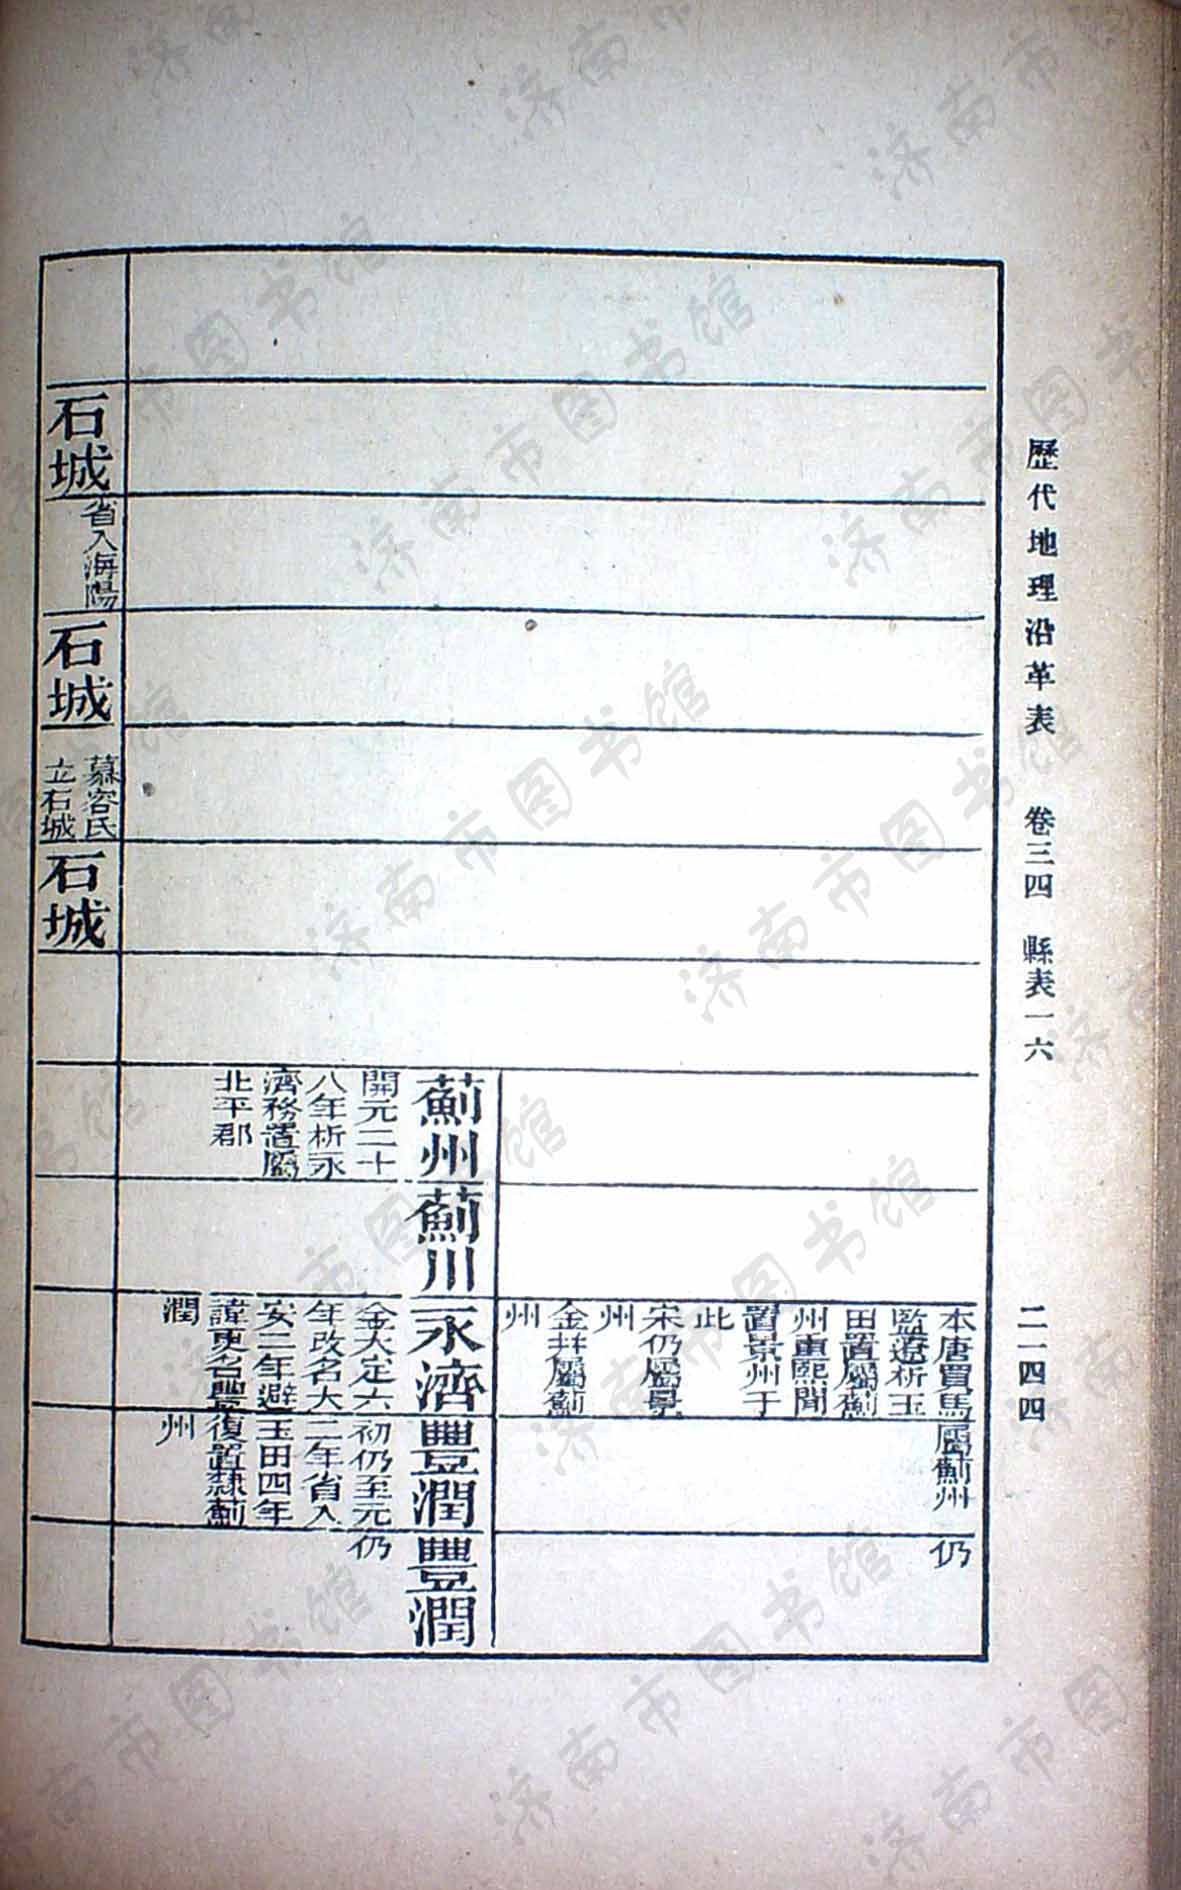 歷代地理沿革表　卷三四　縣表一六　二一四四
本唐買馬
監遼析玉
田置屬薊
州重熙間
置景州于
此
宋仍屬景
州
金并屬薊
州
屬薊州
仍
薊州
開元二十
八年析永
濟務置屬
北平郡
薊川
永濟
金大定六
年改名大
安二年避
諱更名豐
潤
豐潤
初仍至元
二年省入
玉田四年
復置隸薊
州
豐潤
仍
石城
省入海陽
石城
慕容氏
立石城
石城
济南市图书馆